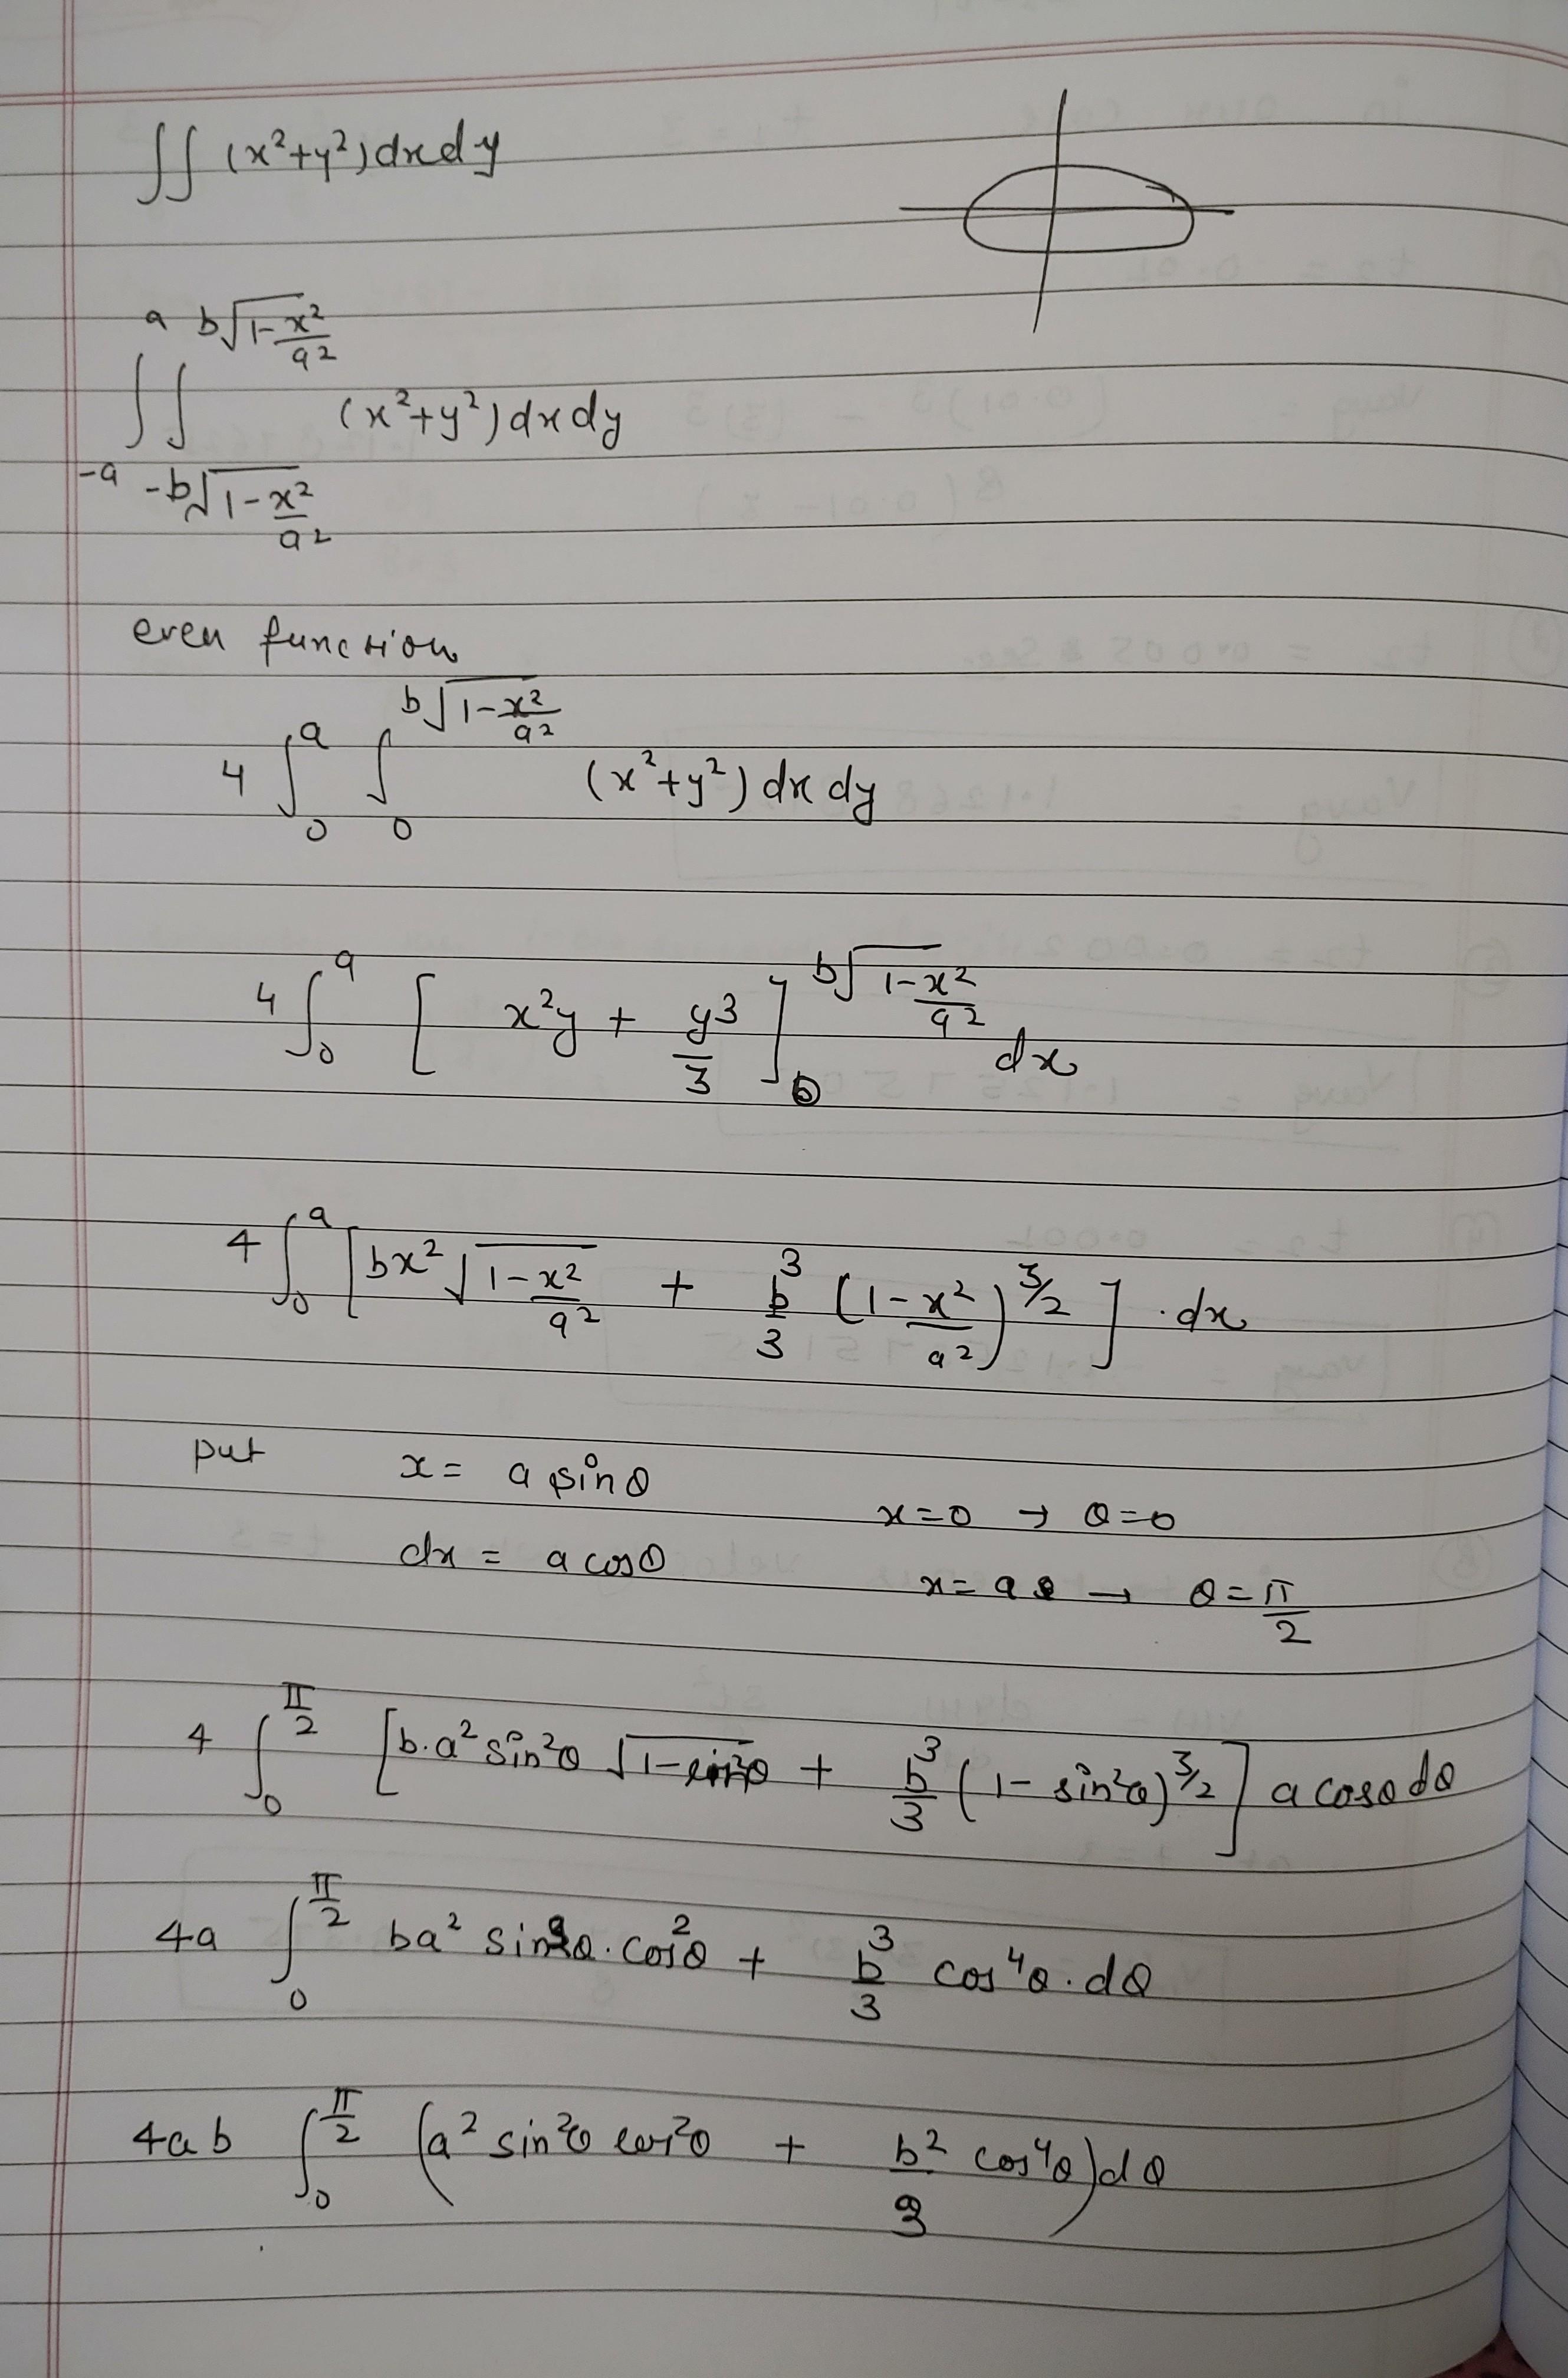 ∫∫ (x²+y²)dxdy
∫_{-a}^{a} ∫_{-b√(1-x²/a²)}^{b√(1-x²/a²)} (x²+y²)dxdy
even function
4 ∫_0^a ∫_0^{b√(1-x²/a²)} (x²+y²)dxdy
4 ∫_0^a [x²y + y³/3]_0^{b√(1-x²/a²)} dx
4 ∫_0^a [bx²√(1-x²/a²) + b³/3 (1-x²/a²)^{3/2}] . dx
put x = a sinθ
x=0 → θ=0
dx = a cosθ
x=a → θ=π/2
4 ∫_0^{π/2} [b.a² sin²θ √(1-sin²θ) + b³/3 (1-sin²θ)^{3/2}] a cosθ dθ
4a ∫_0^{π/2} ba² sin²θ.cos²θ + b³/3 cos⁴θ.dθ
4ab ∫_0^{π/2} (a² sin²θ cos²θ + b²/3 cos⁴θ)dθ